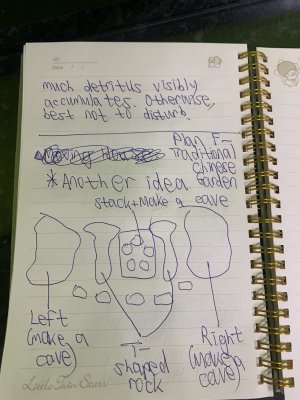 NO.
Date / /
much detritus visibly
accumulates. Otherwise,
best not to disturb.
Plan F-
Traditional
Chinese
Garden
*Another idea
stack + make a cave
Left
(make a
cave)
T-
shaped
rock
Right
(make a
cave)
Little Twin Stars